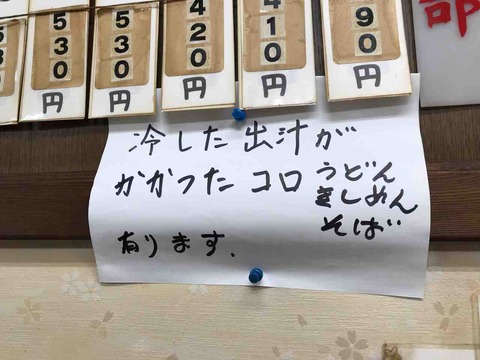 530円
530円
530円
420円
410円
90円
部
冷した出汁が
かかったコロうどん
きしめん
そば
有ります.